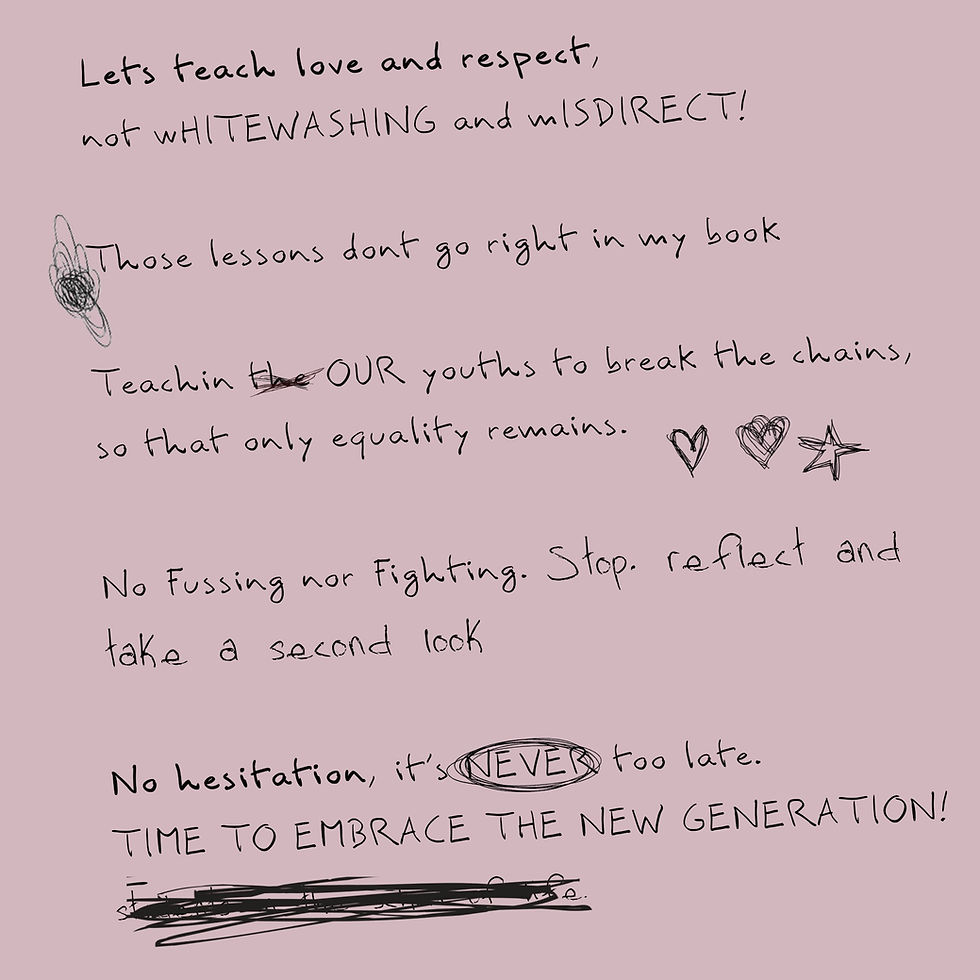 Lets teach love and respect,
not wHITEWASHING and mISDIRECT!
Those lessons dont go right in my book
Teachin the OUR youths to break the chains,
so that only equality remains.
No Fussing nor Fighting. Stop. reflect and
take a second look
No hesitation, it's NEVER too late.
TIME TO EMBRACE THE NEW GENERATION!